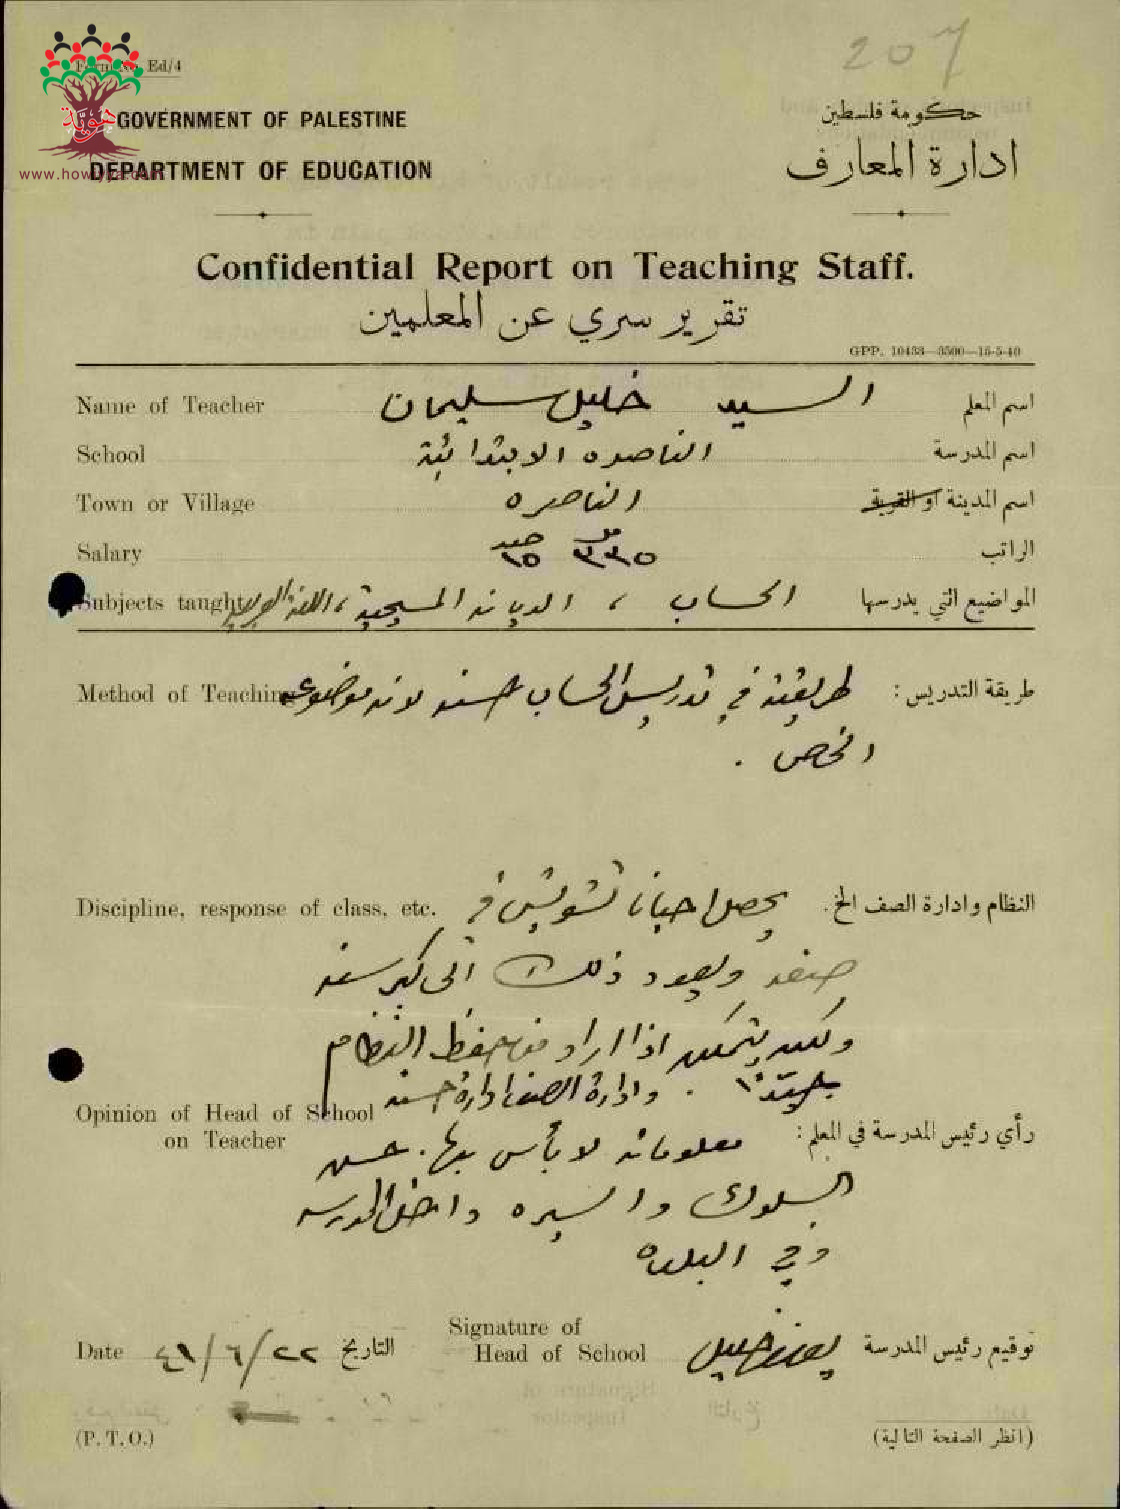 207
Form No. Ed/4
هويّة
www.howiyya.com
GOVERNMENT OF PALESTINE
حكومة فلسطين
DEPARTMENT OF EDUCATION
ادارة المعارف
Confidential Report on Teaching Staff.
تقرير سري عن المعلمين
GPP. 10433—3500—15-5-40
Name of Teacher السيد خليل سليمان اسم المعلم
School الناصره الابتدائية اسم المدرسة
Town or Village الناصره اسم المدينة او القرية
Salary ١٥ ٣٣٥ الراتب
Subjects taught الحساب ، الديانه المسيحية ، اللغة العربية المواضيع التي يدرسها
Method of Teaching طريقته في تدريس الحساب حسنه لانه موضوعه طريقة التدريس :
الخص .
Discipline, response of class, etc. يحصل احيانا تشويش في النظام وادارة الصف الخ.
صفه ويعود ذلك الى كبر سنه
ولكنه يتمكن اذا اراد من حفظ النظام
وادارة الصف ادارة حسنه
Opinion of Head of School
on Teacher
رأي رئيس المدرسة في المعلم :
معلوماته لا بأس بها . حسن
السلوك والسيره داخل المدرسه
وفي البلده
Signature of
Head of School
توقيع رئيس المدرسة
Date ٢٢/٦/٤١ التاريخ
(P. T. O.)
(انظر الصفحة التالية)